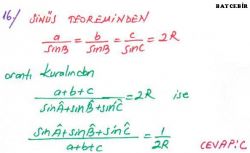 BATCEBİR
16./ SİNÜS TEOREMİNDEN
a/sinB = b/sinB = c/sinC = 2R
orantı kuralından
a+b+c/sinÂ+sinB̂+sinĈ = 2R ise
sinÂ+sinB̂+sinĈ/a+b+c = 1/2R
CEVAP:C